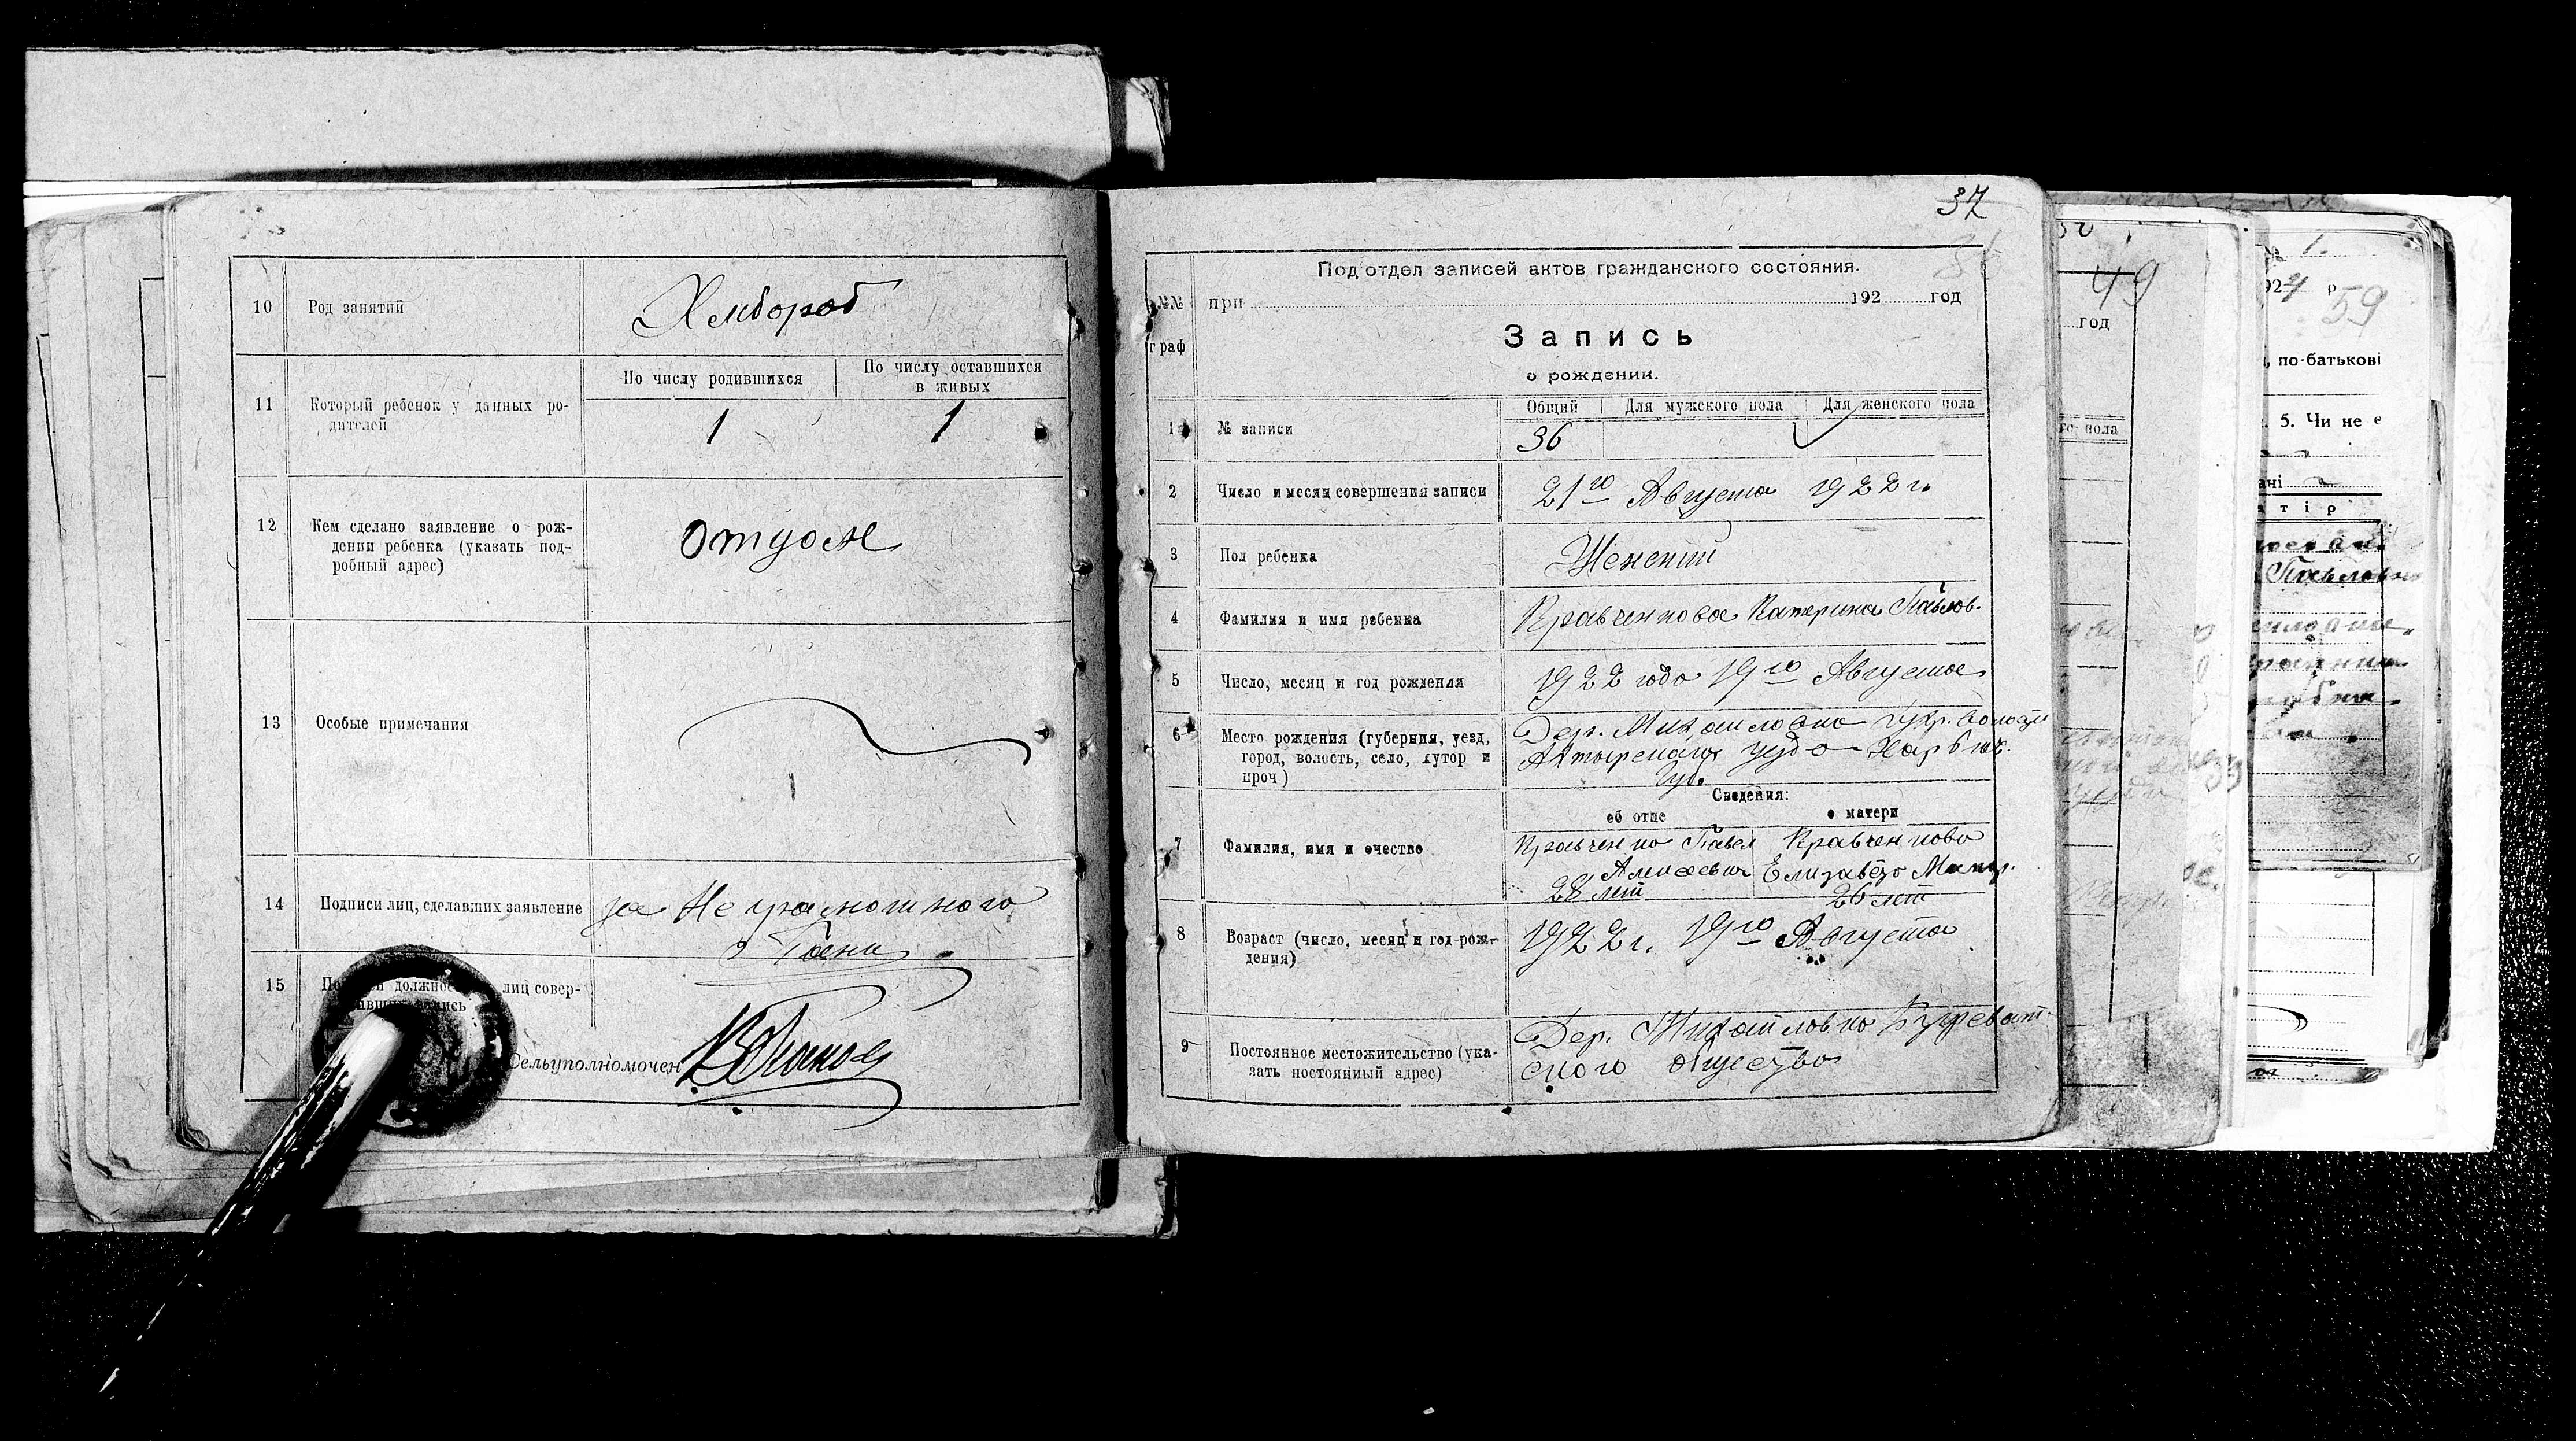 10 Род занятий Хлебороб
11 Который ребенок у данных ро-
дителей
По числу родившихся
По числу оставшихся
в живых
1 1
12 Кем сделано заявление о рож-
дении ребенка (указать под-
робный адрес)
отцом
13 Особые примечания
14 Подписи лиц, сделавших заявление за Неграмотного
15
лиц совер-
Сельуполномочен
37
Под'отдел записей актов гражданского состояния.
№№
граф
при 192 год
Запись
о рождении.
Общий Для мужского пола Для женского пола
1 № записи 36
2 Число и месяц совершения записи 21го Августа 1922 г.
3 Пол ребенка Женский
4 Фамилия и имя ребенка Кравченкова Катерина Павлов.
5 Число, месяц и год рождения 1922 года 19го Августа
6 Место рождения (губерния, уезд,
город, волость, село, хутор и
проч)
Дер. Михайловка волости
Ахтырского уезда Харьков.
Губ.
Сведения:
об отце о матери
7 Фамилия, имя и очество
Кравченко Павел
Алексеевич
28 лет
Кравченкова
Елизавета
26 лет
8 Возраст (число, месяц и год рож-
дения)
1922 г. 19го Августа
9 Постоянное местожительство (ука-
зать постоянный адрес)
Дер. Михайловка
ского общества
49
год
1.
59
, по-батькові
5. Чи не є